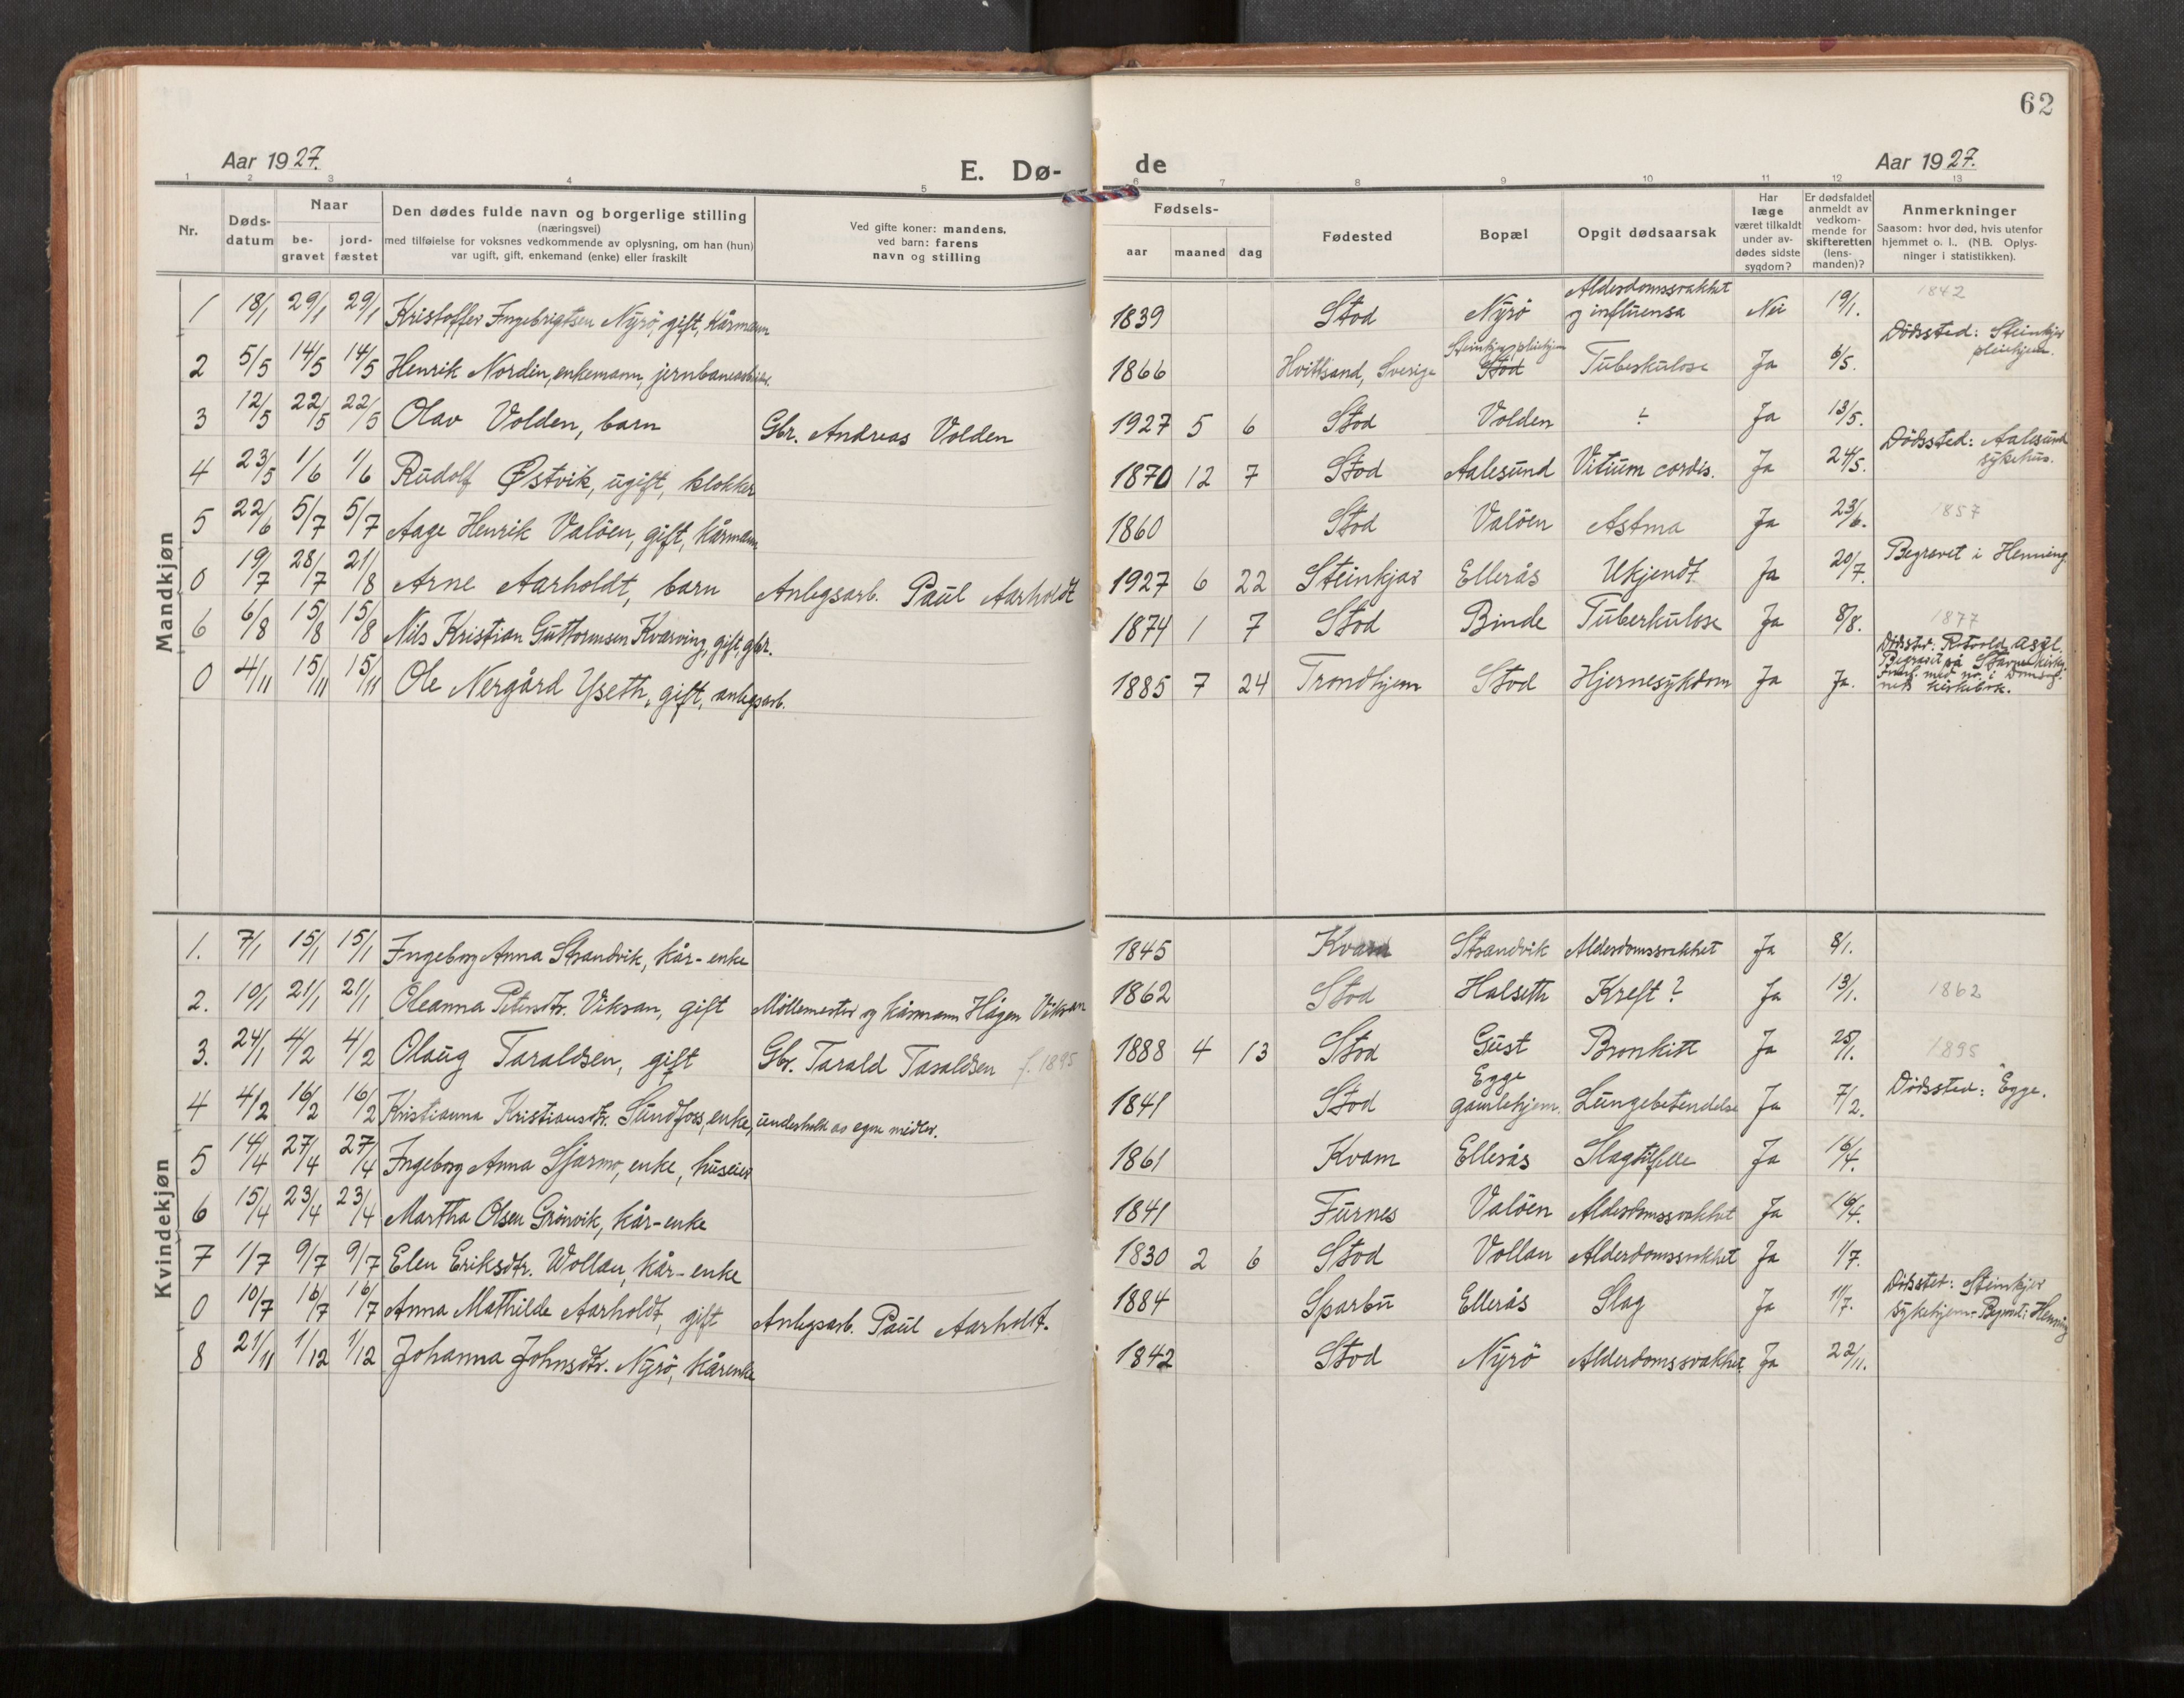 62
Aar 1927.
E. Dø-
de
Aar 1927.
1 2 3 4 5 6 7 8 9 10 11 12 13
Nr.
Døds-
datum
Naar
be-
gravet
jord-
fæstet
Den dødes fulde navn og borgerlige stilling
(næringsvei)
med tilføielse for voksnes vedkommende av oplysning, om han (hun)
var ugift, gift, enkemand (enke) eller fraskilt
Ved gifte koner: mandens,
ved barn: farens
navn og stilling
Fødsels-
aar maaned dag
Fødested
Bopæl
Opgit dødsaarsak
Har
læge
været tilkaldt
under av-
dødes sidste
sygdom?
Er dødsfaldet
anmeldt av
vedkom-
mende for
skifteretten
(lens-
manden)?
Anmerkninger
Saasom: hvor død, hvis utenfor
hjemmet o. l., (NB. Oplys-
ninger i statistikken).
Mandkjøn
1 18/1 29/1 29/1 Kristoffer Ingebrigtsen Nyrö, gift, kårmann 1839 Stod Nyrö Alderdomssvakhet og influensa Nei 19/1. 1842
2 5/5 14/5 14/5 Henrik Nordin, enkemann, jernbanearbeider. 1866 Hvittsand, Sverige Steinkjer pleiehjem Stod Tuberkulose Ja 6/5. Dödssted: Steinkjer pleiehjem.
3 12/5 22/5 22/5 Olav Volden, barn Gbr. Andreas Volden 1927 5 6 Stod Volden ? Ja 13/5.
4 23/5 1/6 1/6 Rudolf Østvik, ugift, klokker 1870 12 7 Stod Aalesund Vitium cordis. Ja 24/5. Dödssted: Aalesund sykehus.
5 22/6 5/7 5/7 Aage Henrik Valöen, gift, kårmann 1860 Stod Valöen Astma Ja 23/6. 1857
0 19/7 28/7 21/8 Arne Aarholdt, barn Anlegsarb. Paul Aarholdt 1927 6 22 Steinkjær Ellerås Ukjendt Ja 20/7. Begravet i Henning
6 6/8 15/8 15/8 Nils Kristian Guttormsen Kvarving, gift, gbr. 1874 1 7 Stod Binde Tuberkulose Ja 8/8. 1877
0 4/11 15/11 15/11 Ole Nergård Yseth, gift, anlegsarb. 1885 7 24 Trondhjem Stod Hjernesykdom Ja Ja. Dödsted: Rotvold asyl. Begravet på Stavne kirkeg. med no. i Domsog- nets kirkebok.
Kvindekjøn
1. 7/1 15/1 15/1 Ingeborg Anna Strandvik, kår-enke 1845 Kvam Strandvik Alderdomssvakhet Ja 8/1.
2. 10/1 21/1 21/1 Oleanna Petersdtr. Viksan, gift Möllemester og kårmann Hågen Viksan 1862 Stod Halseth Kreft? Ja 13/1. 1862
3. 24/1 4/2 4/2 Olaug Taraldsen, gift Gbr. Tarald Taraldsen f. 1895 1888 4 13 Stod Gust Bronkitt Ja 25/1. 1895
4 4/2 16/2 16/2 Kristianna Kristiansdtr. Sundfoss, enke, underholdt av egne midler. 1841 Stod Egge gamlehjem. Lungebetendelse Ja 7/2. Dödssted: Egge.
5 14/4 27/4 27/4 Ingeborg Anna Sjærmo, enke, huseier 1861 Kvam Ellerås Slagtilfelle Ja 16/4.
6 15/4 23/4 23/4 Martha Olsen Grönvik, kår-enke 1841 Furnes Valöen Alderdomssvakhet Ja 16/4.
7 1/7 9/7 9/7 Elen Eriksdtr. Wollan, kår-enke 1830 2 6 Stod Vollan Alderdomssvakhet Ja 1/7.
0 10/7 16/7 16/7 Anna Mathilde Aarholdt, gift Anlegsarb. Paul Aarholdt. 1884 Sparbu Ellerås Slag Ja 11/7. Dödsted: Steinkjer sykehjem. Begravet i Henning
8 21/11 1/12 1/12 Johanna Johnsdtr. Nyrö, kårenke 1842 Stod Nyrö Alderdomssvakhet Ja 22/11.